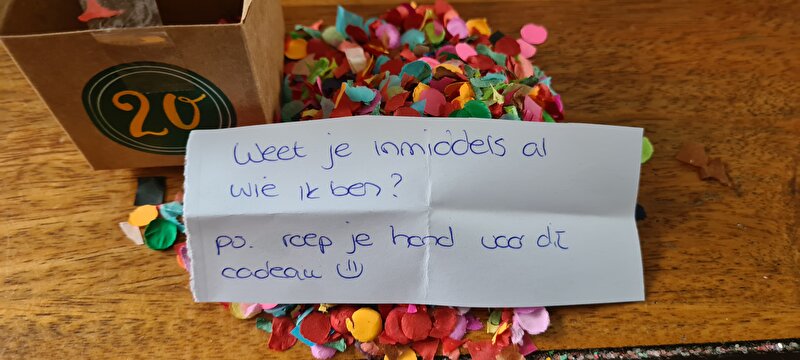 20
Weet je inmiddels al
wie ik ben?
ps. roep je hond voor dit
cadeau